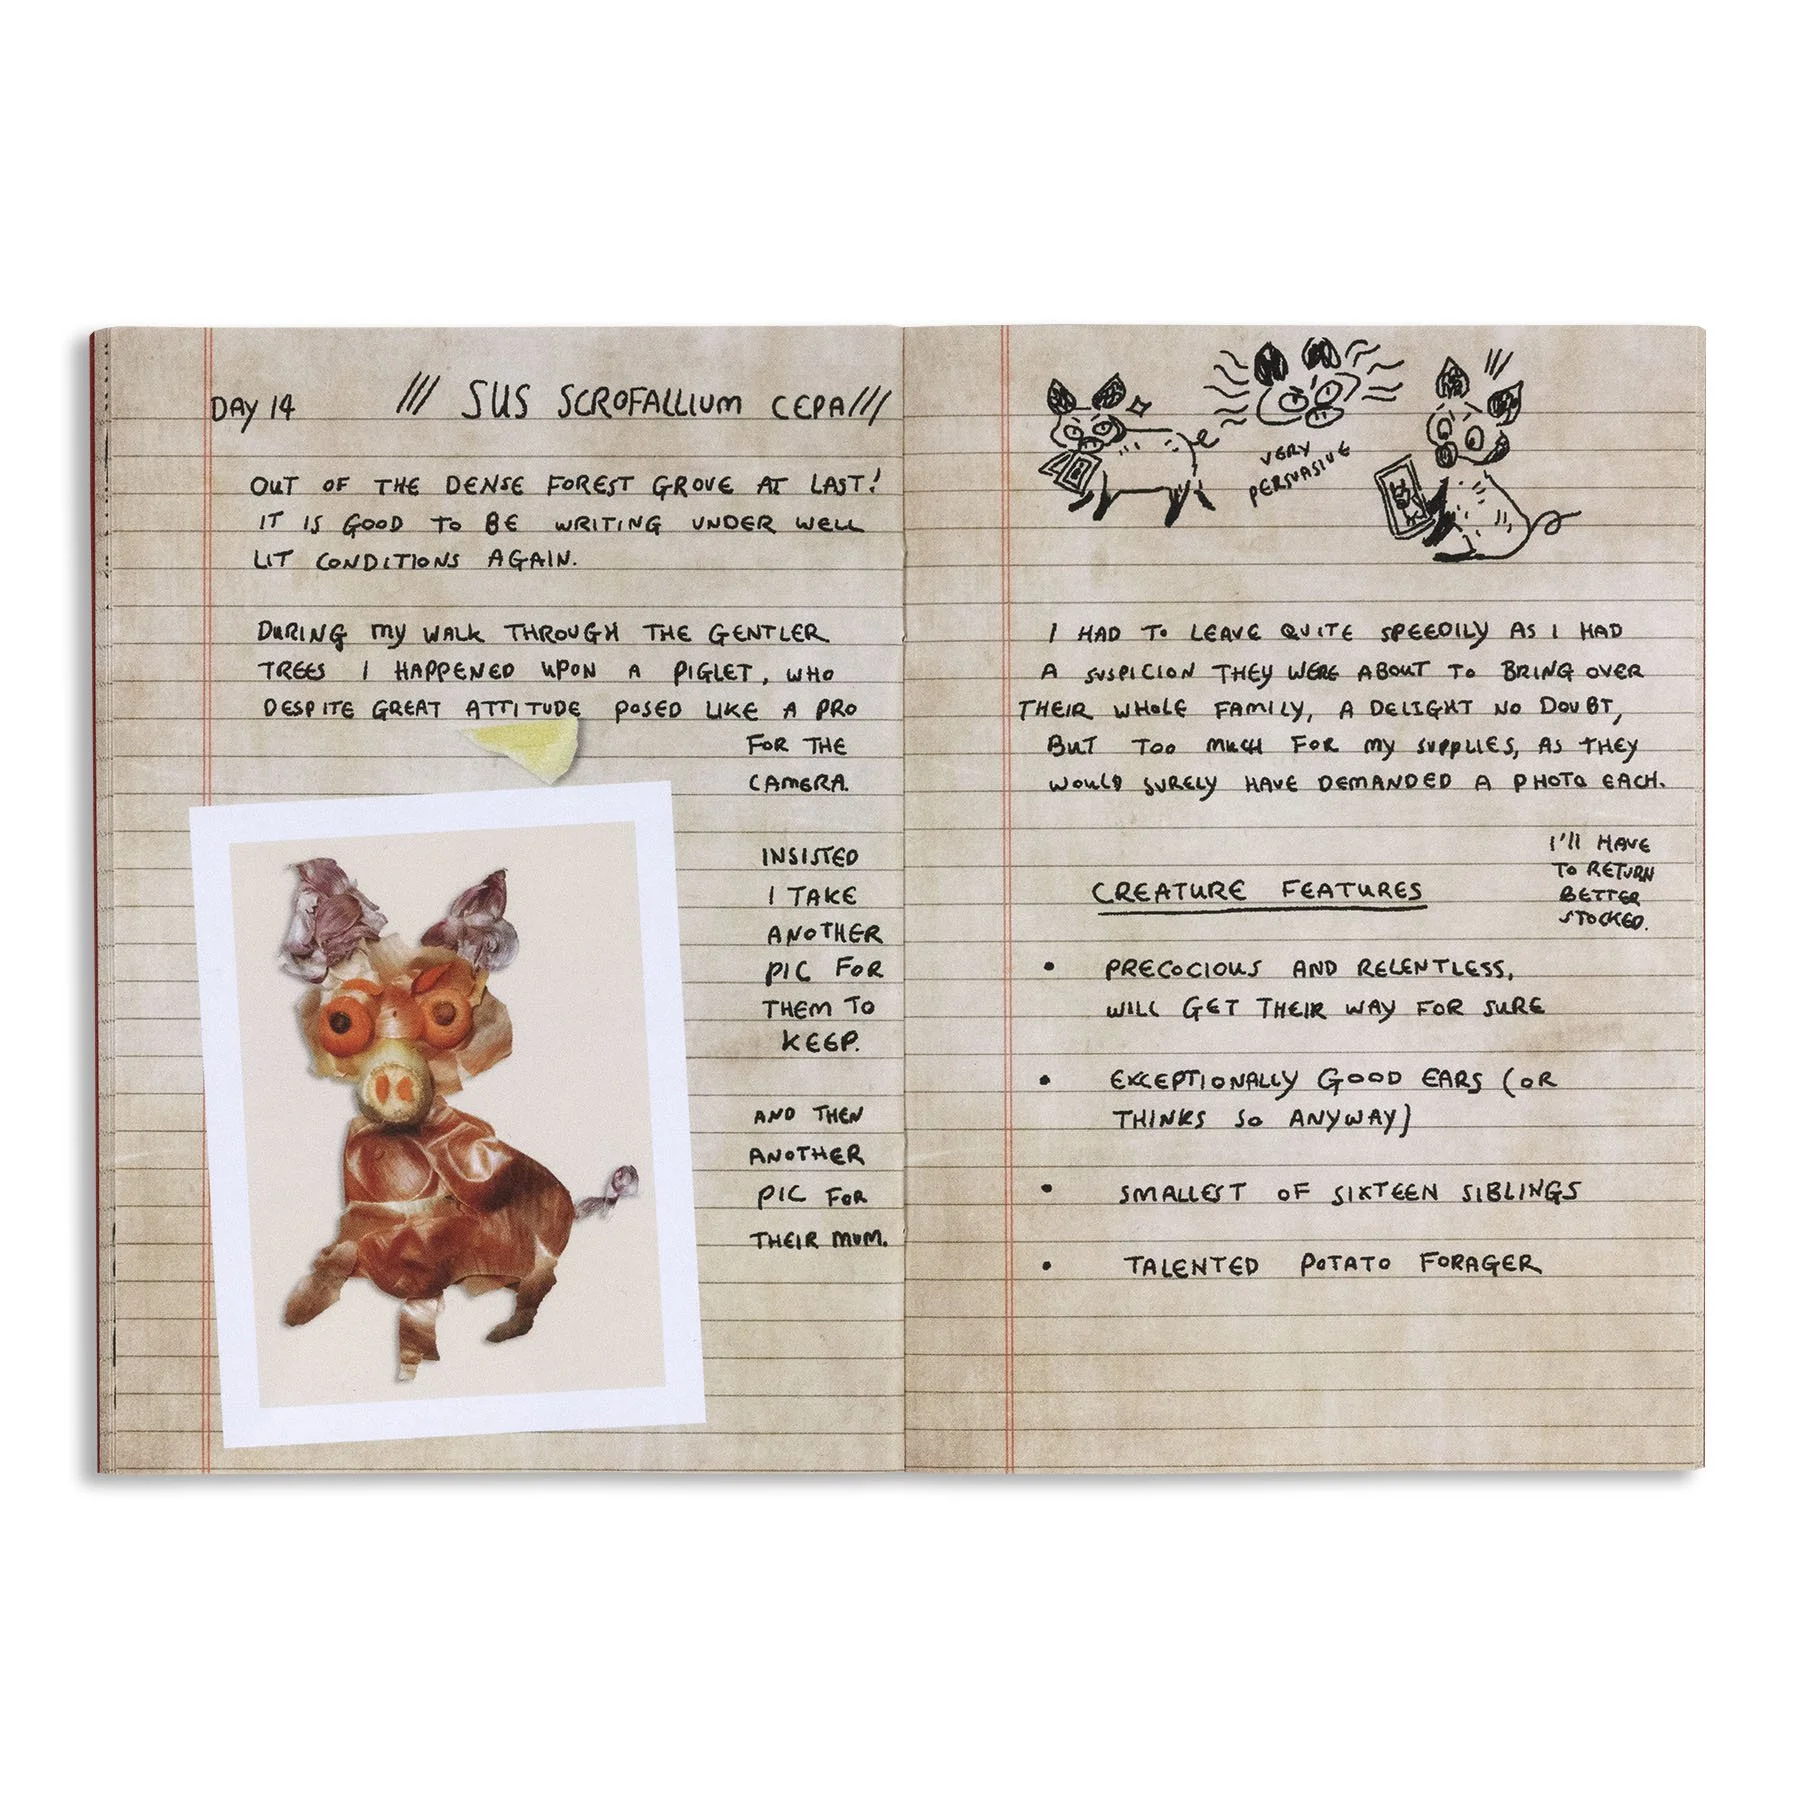 DAY 14
/// SUS SCROFALLIUM CEPA ///
OUT OF THE DENSE FOREST GROVE AT LAST!
IT IS GOOD TO BE WRITING UNDER WELL
LIT CONDITIONS AGAIN.
DURING MY WALK THROUGH THE GENTLER
TREES I HAPPENED UPON A PIGLET, WHO
DESPITE GREAT ATTITUDE POSED LIKE A PRO
FOR THE
CAMERA.
INSISTED
I TAKE
ANOTHER
PIC FOR
THEM TO
KEEP.
AND THEN
ANOTHER
PIC FOR
THEIR MUM.
VERY
PERSUASIVE
I HAD TO LEAVE QUITE SPEEDILY AS I HAD
A SUSPICION THEY WERE ABOUT TO BRING OVER
THEIR WHOLE FAMILY, A DELIGHT NO DOUBT,
BUT TOO MUCH FOR MY SUPPLIES, AS THEY
WOULD SURELY HAVE DEMANDED A PHOTO EACH.
I'll HAVE
TO RETURN
BETTER
STOCKED.
CREATURE FEATURES
• PRECOCIOUS AND RELENTLESS,
WILL GET THEIR WAY FOR SURE
• EXCEPTIONALLY GOOD EARS (OR
THINKS SO ANYWAY)
• SMALLEST OF SIXTEEN SIBLINGS
• TALENTED POTATO FORAGER